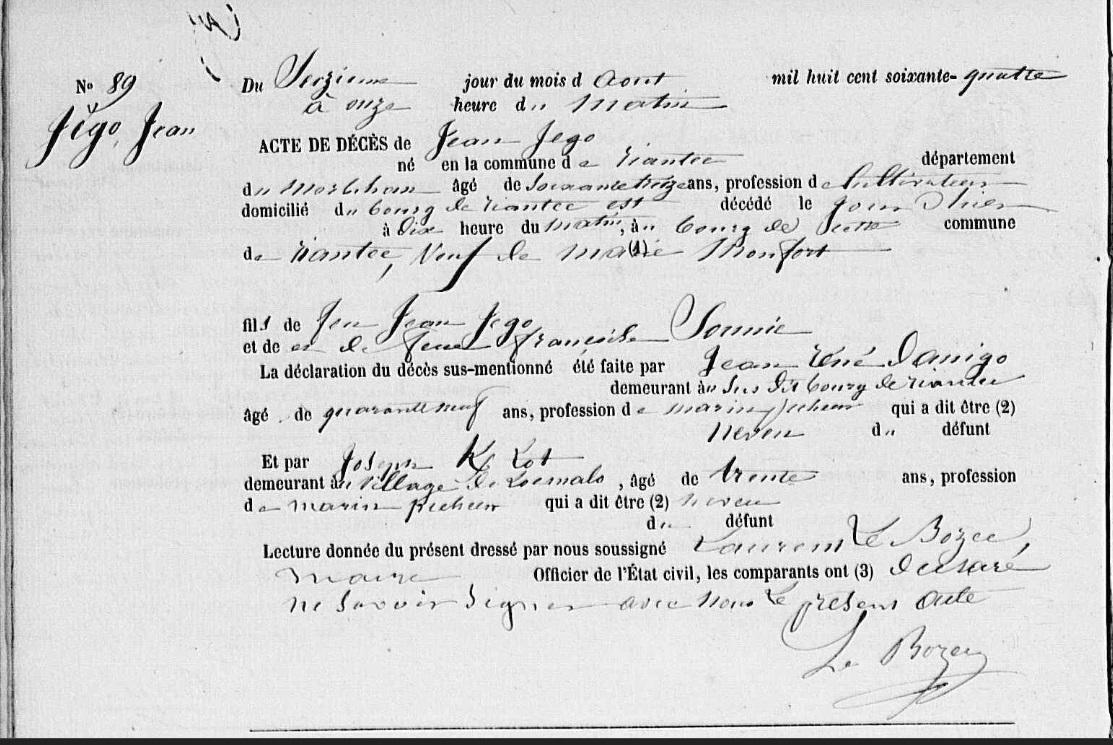 N° 89
Jégo, Jean
Du Seizieme jour du mois d aout mil huit cent soixante-quatre
à onze heure du matin
ACTE DE DÉCÈS de Jean Jego
né en la commune de Riantec département
du Morbihan âgé de soixantetreize ans, profession de Cultivateur
domicilié du bourg de riantec est décédé le jour d'hier
à dix heure du matin, à u bourg de commune
de Riantec, Veuf de Marie Monfort (1)
fils de feu Jean Jego
et de et de feue françoise
La déclaration du décès sus-mentionné été faite par Jean René Danigo
demeurant au Sus dit bourg de riantec
âgé de quaranteneuf ans, profession de marin pecheur qui a dit être (2)
neveu du défunt
Et par Joseph K Lot
demeurant au village de Locmalo, âgé de trente ans, profession
de marin pecheur qui a dit être (2) neveu
du défunt
Lecture donnée du présent dressé par nous soussigné Laurent Le Bozec,
maire Officier de l'État civil, les comparants ont (3) déclaré
ne savoir signer avec nous le présent acte
Le Bozec